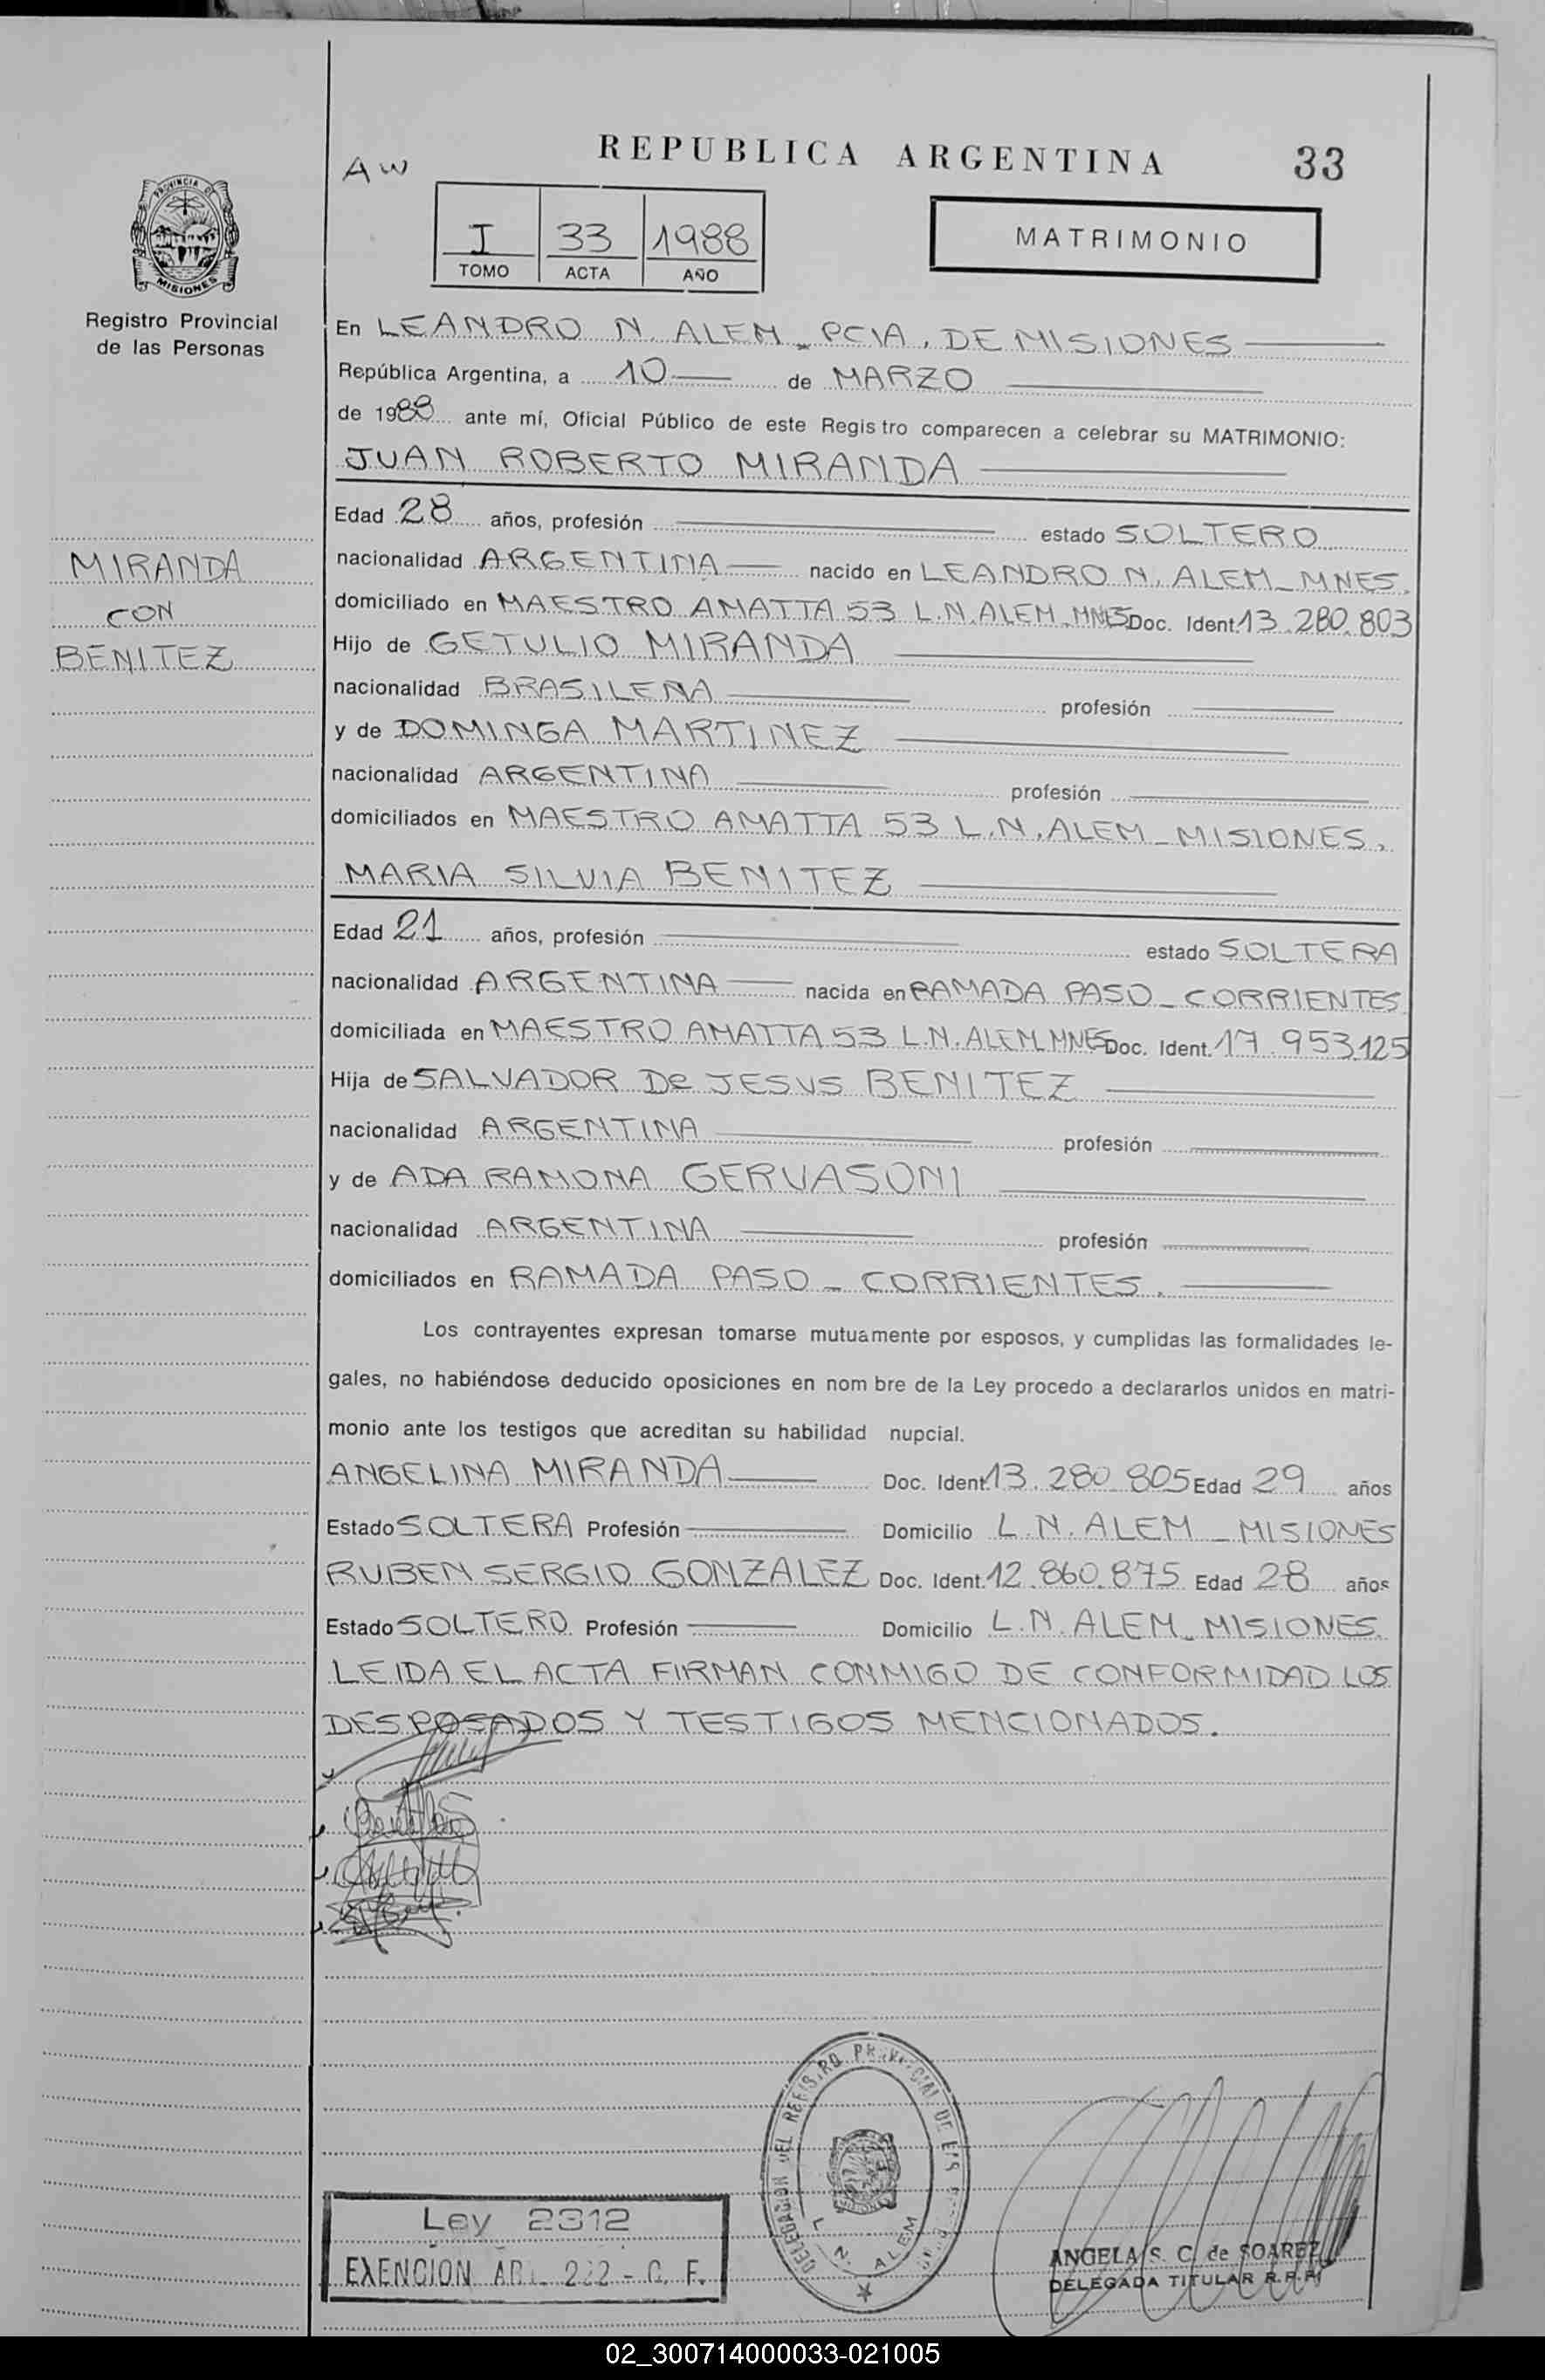 AW
REPUBLICA ARGENTINA
33
PROVINCIA DE
MISIONES
I 33 1988
TOMO ACTA AÑO
MATRIMONIO
Registro Provincial
de las Personas
MIRANDA
CON
BENITEZ
En LEANDRO N. ALEM - PCIA. DE MISIONES
República Argentina, a 10 de MARZO
de 1988 ante mí, Oficial Público de este Registro comparecen a celebrar su MATRIMONIO:
JUAN ROBERTO MIRANDA
Edad 28 años, profesión estado SOLTERO
nacionalidad ARGENTINA nacido en LEANDRO N. ALEM - MNES.
domiciliado en MAESTRO AMATTA 53 L.N. ALEM - MNES Doc. Ident. 13.280.803
Hijo de GETULIO MIRANDA
nacionalidad BRASILEÑA profesión
y de DOMINGA MARTINEZ
nacionalidad ARGENTINA profesión
domiciliados en MAESTRO AMATTA 53 L.N. ALEM - MISIONES.
MARIA SILVIA BENITEZ
Edad 21 años, profesión estado SOLTERA
nacionalidad ARGENTINA nacida en RAMADA PASO - CORRIENTES
domiciliada en MAESTRO AMATTA 53 L.N. ALEM MNES Doc. Ident. 17.953.125
Hija de SALVADOR De JESUS BENITEZ
nacionalidad ARGENTINA profesión
y de ADA RAMONA GERVASONI
nacionalidad ARGENTINA profesión
domiciliados en RAMADA PASO - CORRIENTES.
Los contrayentes expresan tomarse mutuamente por esposos, y cumplidas las formalidades le-
gales, no habiéndose deducido oposiciones en nombre de la Ley procedo a declararlos unidos en matri-
monio ante los testigos que acreditan su habilidad nupcial.
ANGELINA MIRANDA Doc. Ident. 13.280.805 Edad 29 años
Estado SOLTERA Profesión Domicilio L.N. ALEM - MISIONES
RUBEN SERGIO GONZALEZ Doc. Ident. 12.860.875 Edad 28 años
Estado SOLTERO Profesión Domicilio L.N. ALEM - MISIONES.
LEIDA EL ACTA FIRMAN CONMIGO DE CONFORMIDAD LOS
DESPOSADOS Y TESTIGOS MENCIONADOS.
DELEGACION DEL REGISTRO PROVINCIAL DE
L. N. ALEM
Ley 2312
EXENCION ART. 222 - C. F.
ANGELA S. C. de SOAREZ
DELEGADA TITULAR R.P.P.
02_300714000033-021005